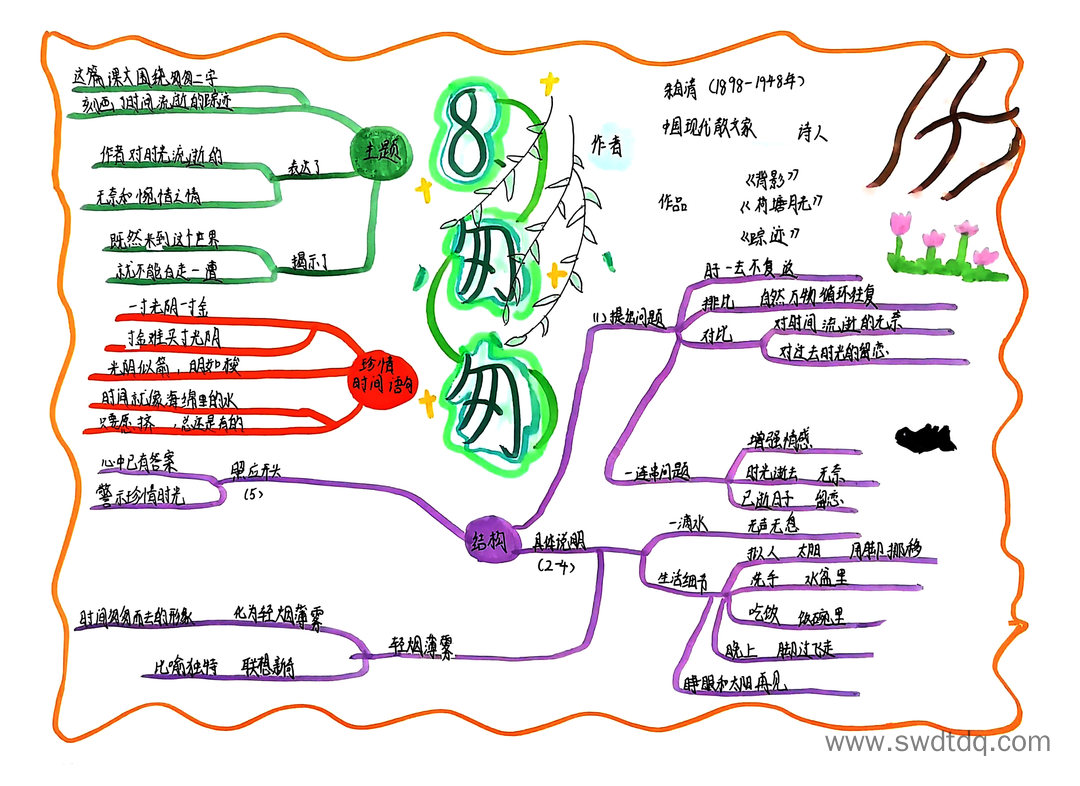 8、匆匆
作者
朱自清 (1898-1948年)
中国现代散文家 诗人
作品
《背影》
《荷塘月色》
《踪迹》
主题
这篇课文围绕匆匆二字
刻画了时间流逝的踪迹
表达了
作者对时光流逝的
无奈和惋惜之情
揭示了
既然来到这个世界
就不能白走一遭
珍惜
时间语句
一寸光阴一寸金
寸金难买寸光阴
光阴似箭,日月如梭
时间就像海绵里的水
只要愿挤,总还是有的
结构
(1)提出问题
时一去不复返
排比 自然万物循环往复
对比
对时间流逝的无奈
对过去时光的留恋
一连串问题
增强情感
时光逝去 无奈
已逝日子 留恋
具体说明
(2-4)
一滴水 无声无息
生活细节
拟人 太阳 用脚挪移
洗手 水盆里
吃饭 饭碗里
晚上 脚边飞走
睁眼和太阳再见
轻烟薄雾
时间匆匆而去的形象 化为轻烟薄雾
比喻独特 联想新奇
照应开头
(5)
心中已有答案
警示珍惜时光
www.swdtdq.com